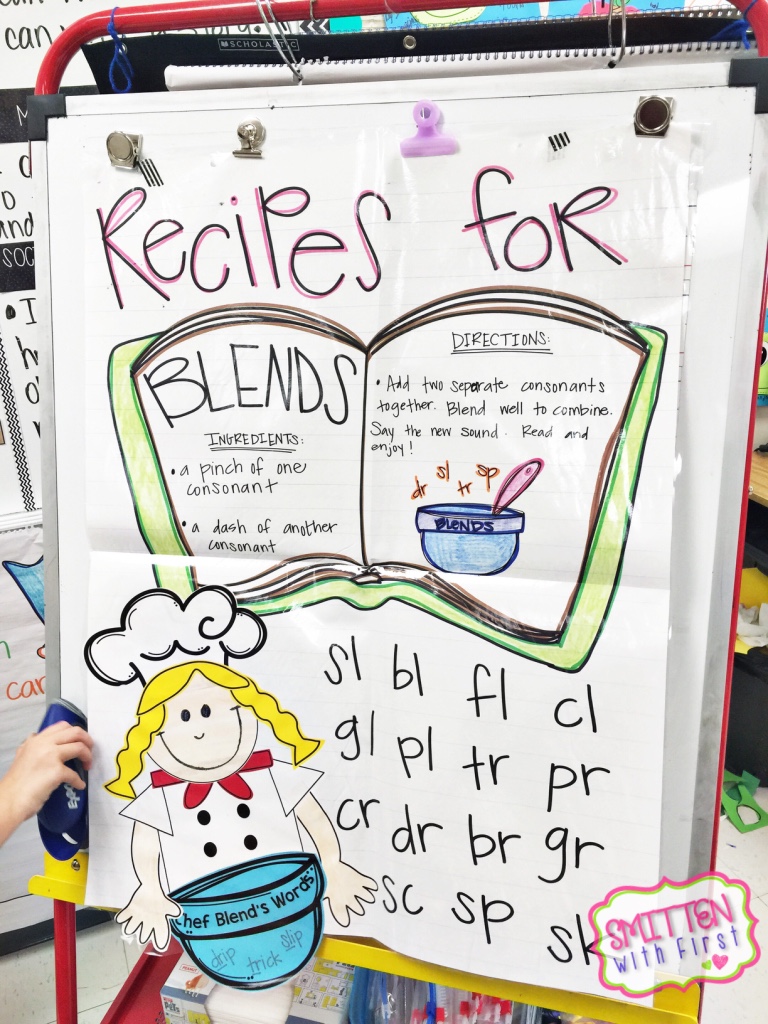 SCHOLASTIC
can
Recipes for
BLENDS
INGREDIENTS:
• a pinch of one
consonant
• a dash of another
consonant
DIRECTIONS:
• Add two separate consonants
together. Blend well to combine.
Say the new sound. Read and
enjoy!
dr sl tr sp
BLENDS
sl bl fl cl
gl pl tr pr
cr dr br gr
sc sp sk
Chef Blend's Words
drip trick slip
SMITTEN
with First